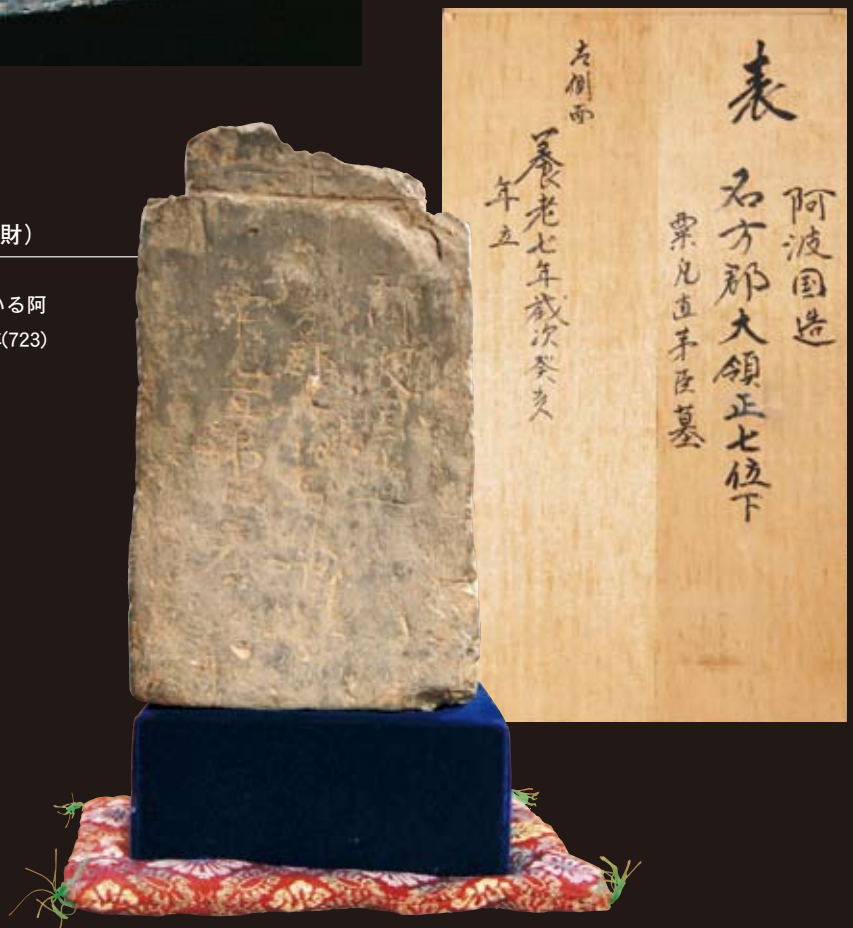 財）
いる阿
(723)
表
阿波国造
名方郡大領正七位下
粟凡直弟臣墓
左側面
養老七年歳次癸亥
年立
阿波国造